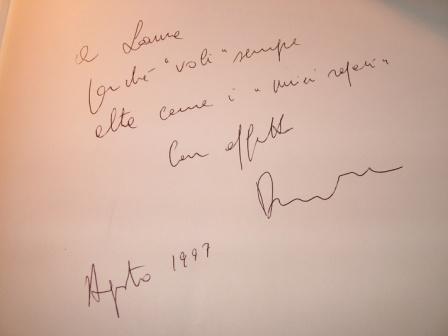 a Laura
perché "voli" sempre
alta come i "miei segni"
Con affetto
Agosto 1997